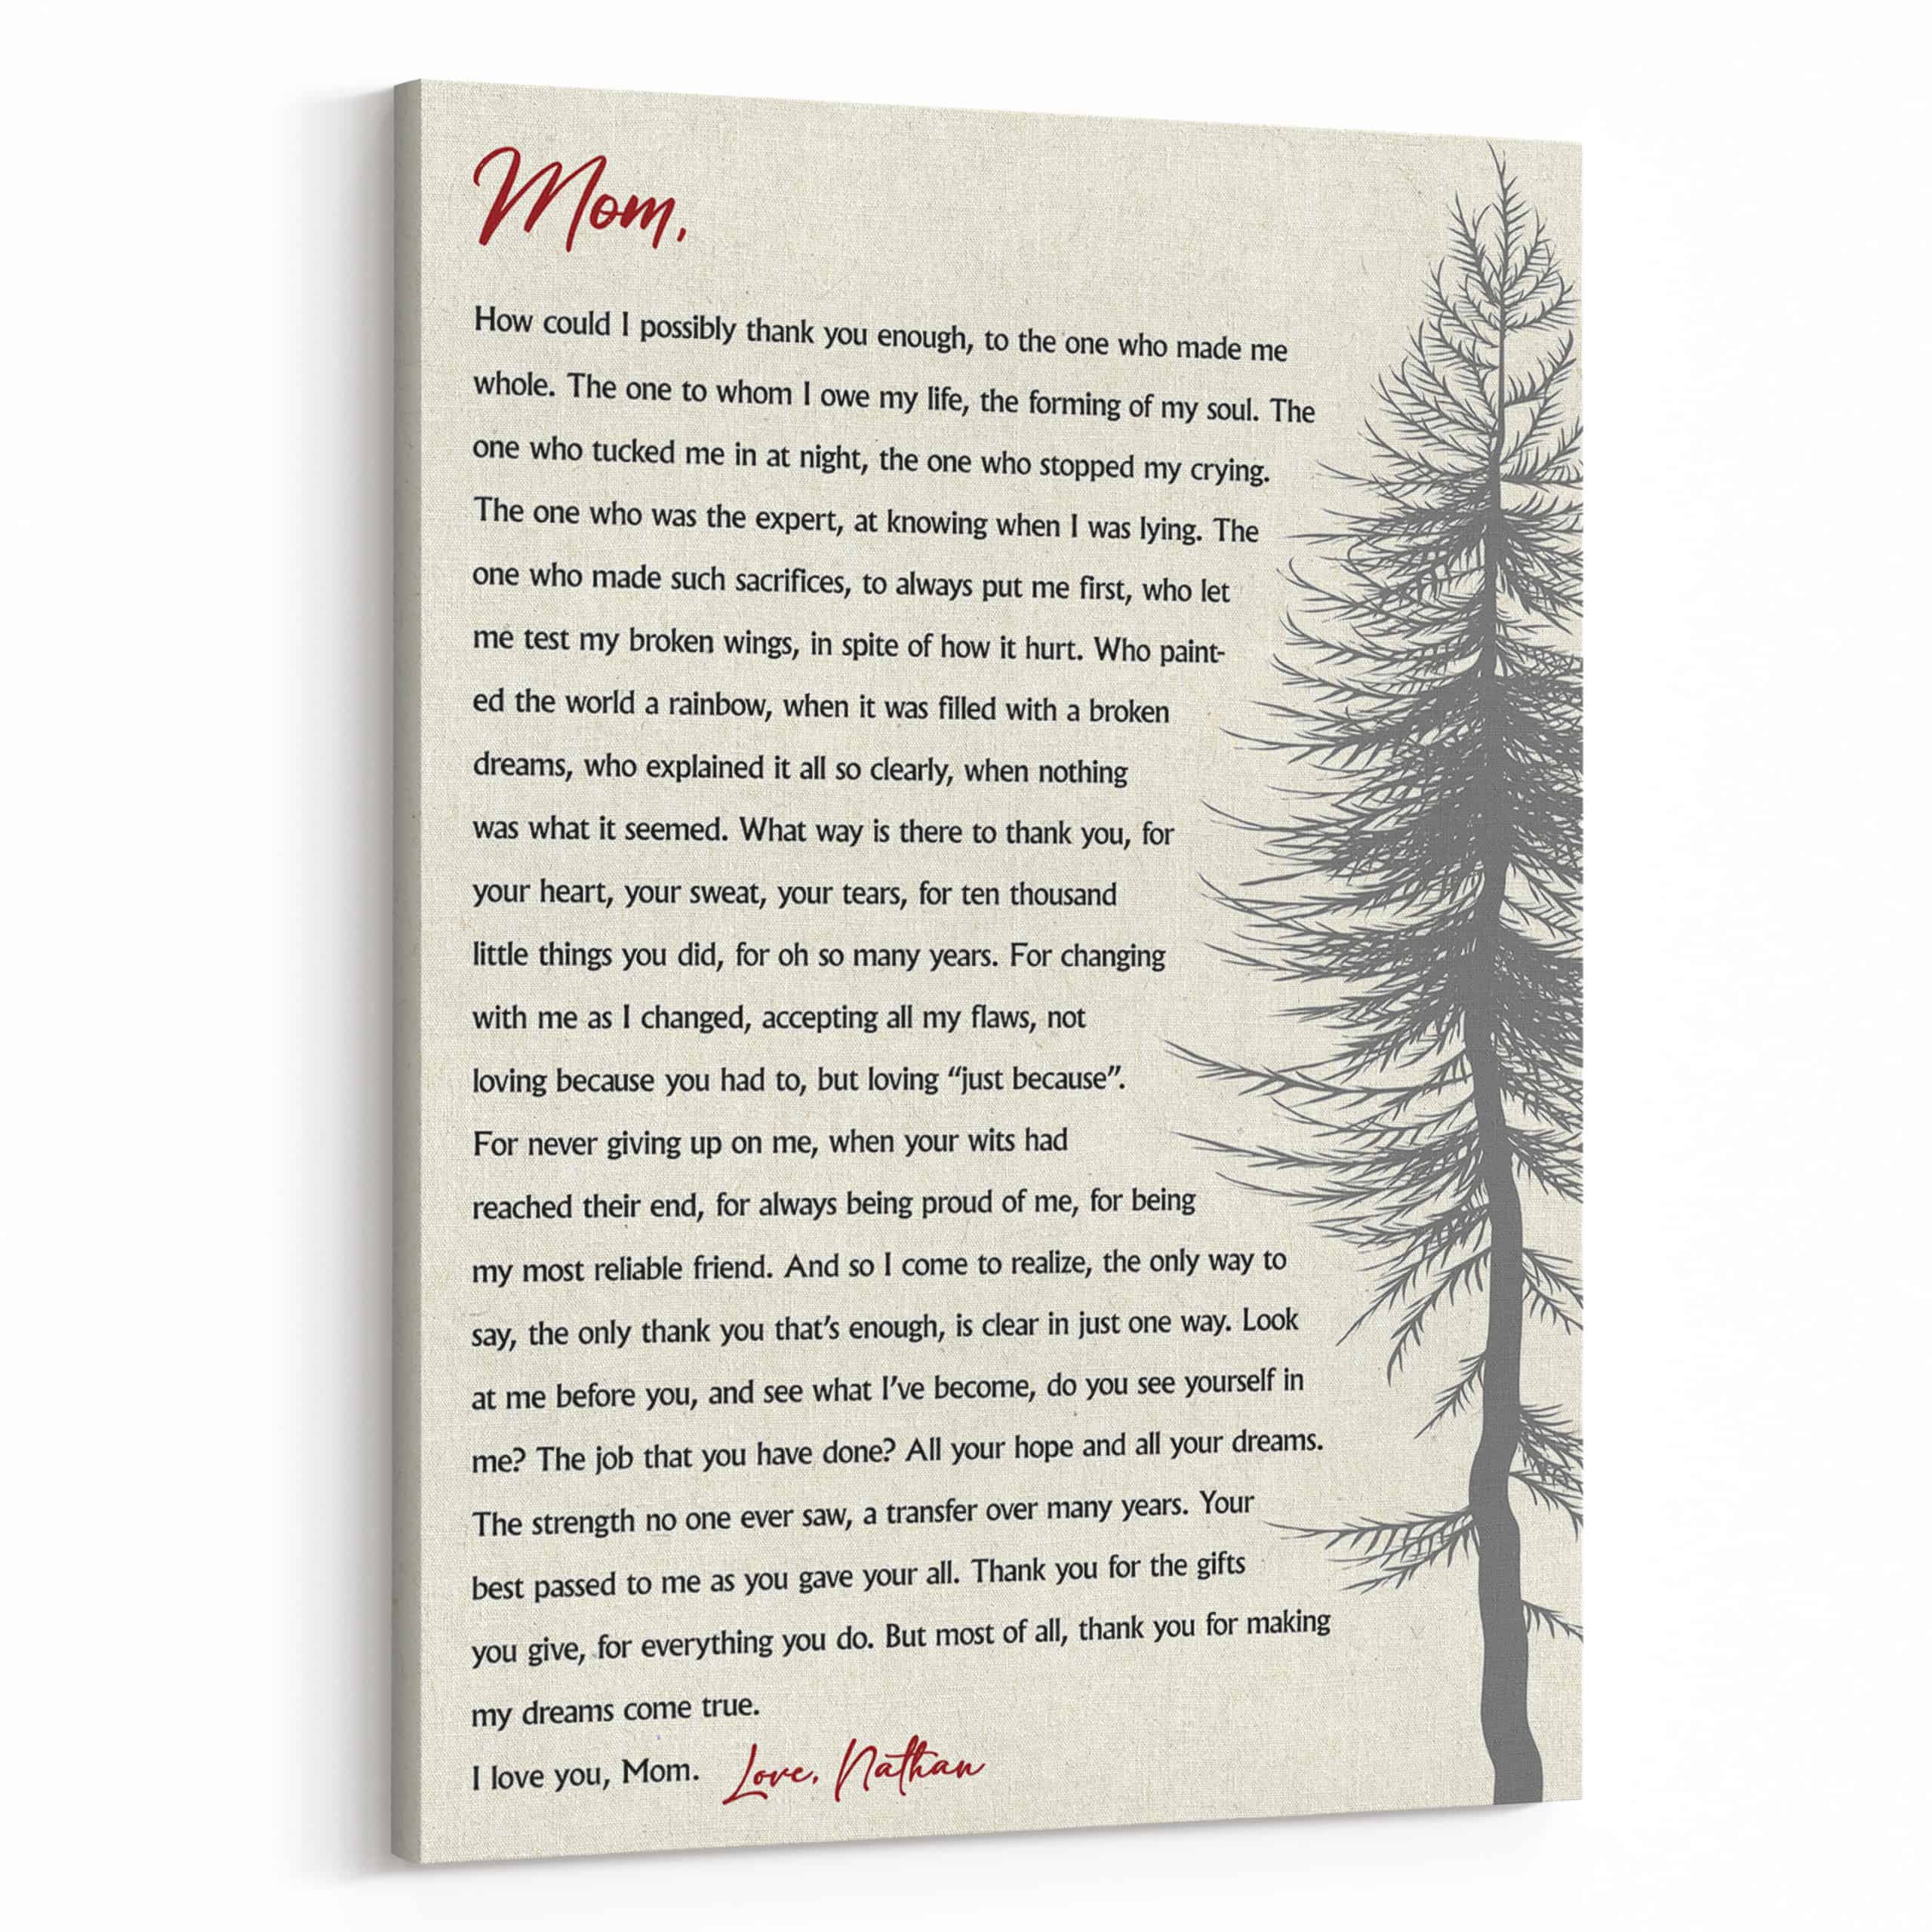 Mom,
How could I possibly thank you enough, to the one who made me
whole. The one to whom I owe my life, the forming of my soul. The
one who tucked me in at night, the one who stopped my crying.
The one who was the expert, at knowing when I was lying. The
one who made such sacrifices, to always put me first, who let
me test my broken wings, in spite of how it hurt. Who paint-
ed the world a rainbow, when it was filled with a broken
dreams, who explained it all so clearly, when nothing
was what it seemed. What way is there to thank you, for
your heart, your sweat, your tears, for ten thousand
little things you did, for oh so many years. For changing
with me as I changed, accepting all my flaws, not
loving because you had to, but loving “just because”.
For never giving up on me, when your wits had
reached their end, for always being proud of me, for being
my most reliable friend. And so I come to realize, the only way to
say, the only thank you that’s enough, is clear in just one way. Look
at me before you, and see what I’ve become, do you see yourself in
me? The job that you have done? All your hope and all your dreams.
The strength no one ever saw, a transfer over many years. Your
best passed to me as you gave your all. Thank you for the gifts
you give, for everything you do. But most of all, thank you for making
my dreams come true.
I love you, Mom. Love, Nathan